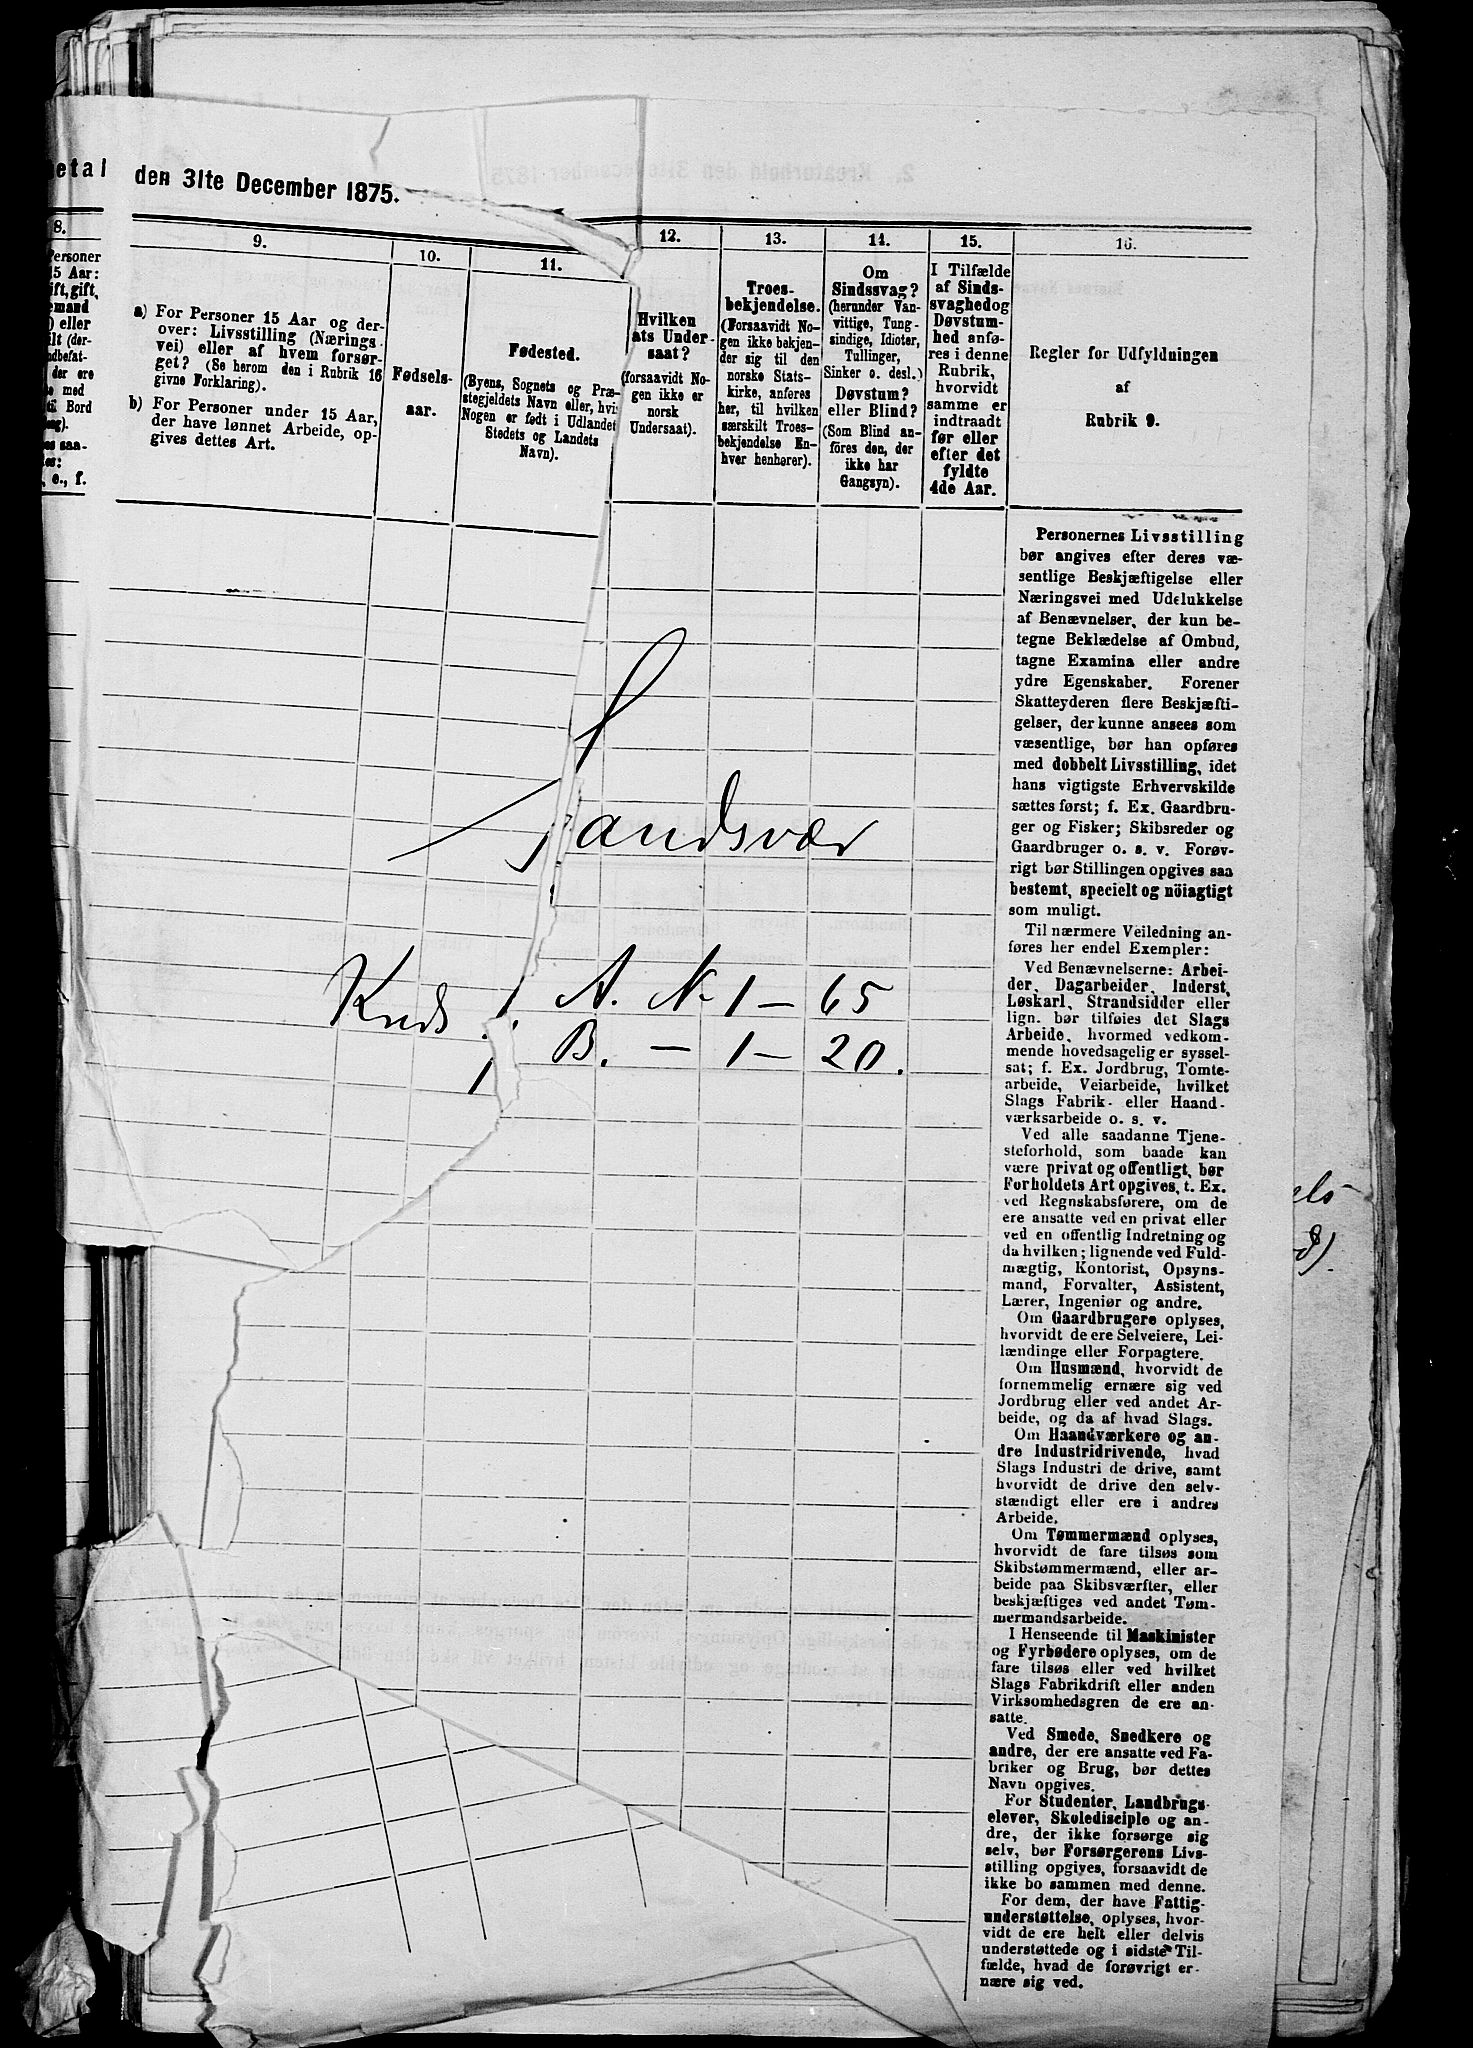 etal den 31te December 1875.
8.
Personer
15 Aar:
ift, gift,
emand
) eller
ilt (der-
ndbefat-
der ere
e med
til Bord
es saa-
es:
, e., f.
9.
a) For Personer 15 Aar og der-
over: Livsstilling (Nærings
vei) eller af hvem forsør-
get? (Se herom den i Rubrik 16
givne Forklaring).
b) For Personer under 15 Aar,
der have lønnet Arbeide, op-
gives dettes Art.
10.
Fødsels-
aar.
11.
Fødested.
(Byens, Sognets og Præ-
stegjeldets Navn eller, hvis
Nogen er født i Udlandet
Stedets og Landets
Navn).
12.
Hvilken
ats Under-
saat?
(forsaavidt No-
gen ikke er
norsk
Undersaat).
13.
Troes-
bekjendelse.
(Forsaavidt No-
gen ikke bekjen-
der sig til den
norske Stats-
kirke, anføres
her, til hvilken
særskilt Troes-
bekjendelse En-
hver henhører).
14.
Om
Sindssvag?
(herunder Van-
vittige, Tung-
sindige, Idioter,
Tullinger,
Sinker o. desl.)
Døvstum?
eller Blind?
(Som Blind an-
føres den, der
ikke har
Gangsyn).
15.
I Tilfælde
af Sinds-
svaghedog
Døvstum-
hed anfø-
res i denne
Rubrik,
hvorvidt
samme er
indtraadt
før eller
efter det
fyldte
4de Aar.
16.
Regler for Udfyldningen
af
Rubrik 9.
Personernes Livsstilling
bør angives efter deres væ-
sentlige Beskjæftigelse eller
Næringsvei med Udelukkelse
af Benævnelser, der kun be-
tegne Beklædelse af Ombud,
tagne Examina eller andre
ydre Egenskaber. Forener
Skatteyderen flere Beskjæfti-
gelser, der kunne ansees som
væsentlige, bør han opføres
med dobbelt Livsstilling, idet
hans vigtigste Erhvervskilde
sættes først; f. Ex. Gaardbru-
ger og Fisker; Skibsreder og
Gaardbruger o. s. v. Forøv-
rigt bør Stillingen opgives saa
bestemt, specielt og nöiagtigt
som muligt.
Til nærmere Veiledning an-
føres her endel Exempler:
Ved Benævnelserne: Arbei-
der, Dagarbeider, Inderst,
Løskarl, Strandsidder eller
lign. bør tilføies det Slags
Arbeide, hvormed vedkom-
mende hovedsagelig er syssel-
sat; f. Ex. Jordbrug, Tomte-
arbeide, Veiarbeide, hvilket
Slags Fabrik- eller Haand-
værksarbeide o. s. v.
Ved alle saadanne Tjene-
steforhold, som baade kan
være privat og offentligt, bør
Forholdets Art opgives, t. Ex.
ved Regnskabsførere, om de
ere ansatte ved en privat eller
ved en offentlig Indretning og
da hvilken; lignende ved Fuld-
mægtig, Kontorist, Opsyns-
mand, Forvalter, Assistent,
Lærer, Ingeniør og andre.
Om Gaardbrugere oplyses,
hvorvidt de ere Selveiere, Lei-
lændinge eller Forpagtere.
Om Husmænd, hvorvidt de
fornemmelig ernære sig ved
Jordbrug eller ved andet Ar-
beide, og da af hvad Slags.
Om Haandværkere og an-
dre Industridrivende, hvad
Slags Industri de drive, samt
hvorvidt de drive den selv-
stændigt eller ere i andres
Arbeide.
Om Tømmermænd oplyses,
hvorvidt de fare tilsøs som
Skibstømmermænd, eller ar-
beide paa Skibsværfter, eller
beskjæftiges ved andet Tøm-
mermandsarbeide.
I Henseende til Maskinister
og Fyrbødere oplyses, om de
fare tilsøs eller ved hvilket
Slags Fabrikdrift eller anden
Virksomhedsgren de ere an-
satte.
Ved Smede, Snedkere og
andre, der ere ansatte ved Fa-
briker og Brug, bør dettes
Navn opgives.
For Studenter, Landbrugs-
elever, Skoledisciple og an-
dre, der ikke forsørge sig
selv, bør Forsørgerens Livs-
stilling opgives, forsaavidt de
ikke bo sammen med denne.
For dem, der have Fattig-
understøttelse, oplyses, hvor-
vidt de ere helt eller delvis
understøttede og i sidste Til-
fælde, hvad de forøvrigt er-
nære sig ved.
Sandsvær
Kreds 1. A. N. 1 - 65
1 B. - 1 - 20.
els